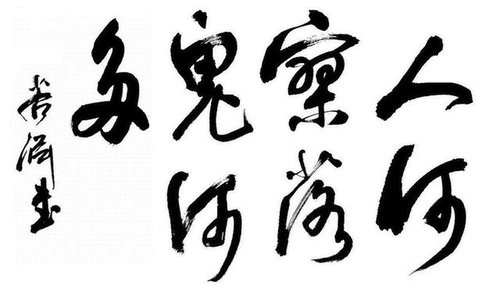 人何
寥落
鬼何
多
书